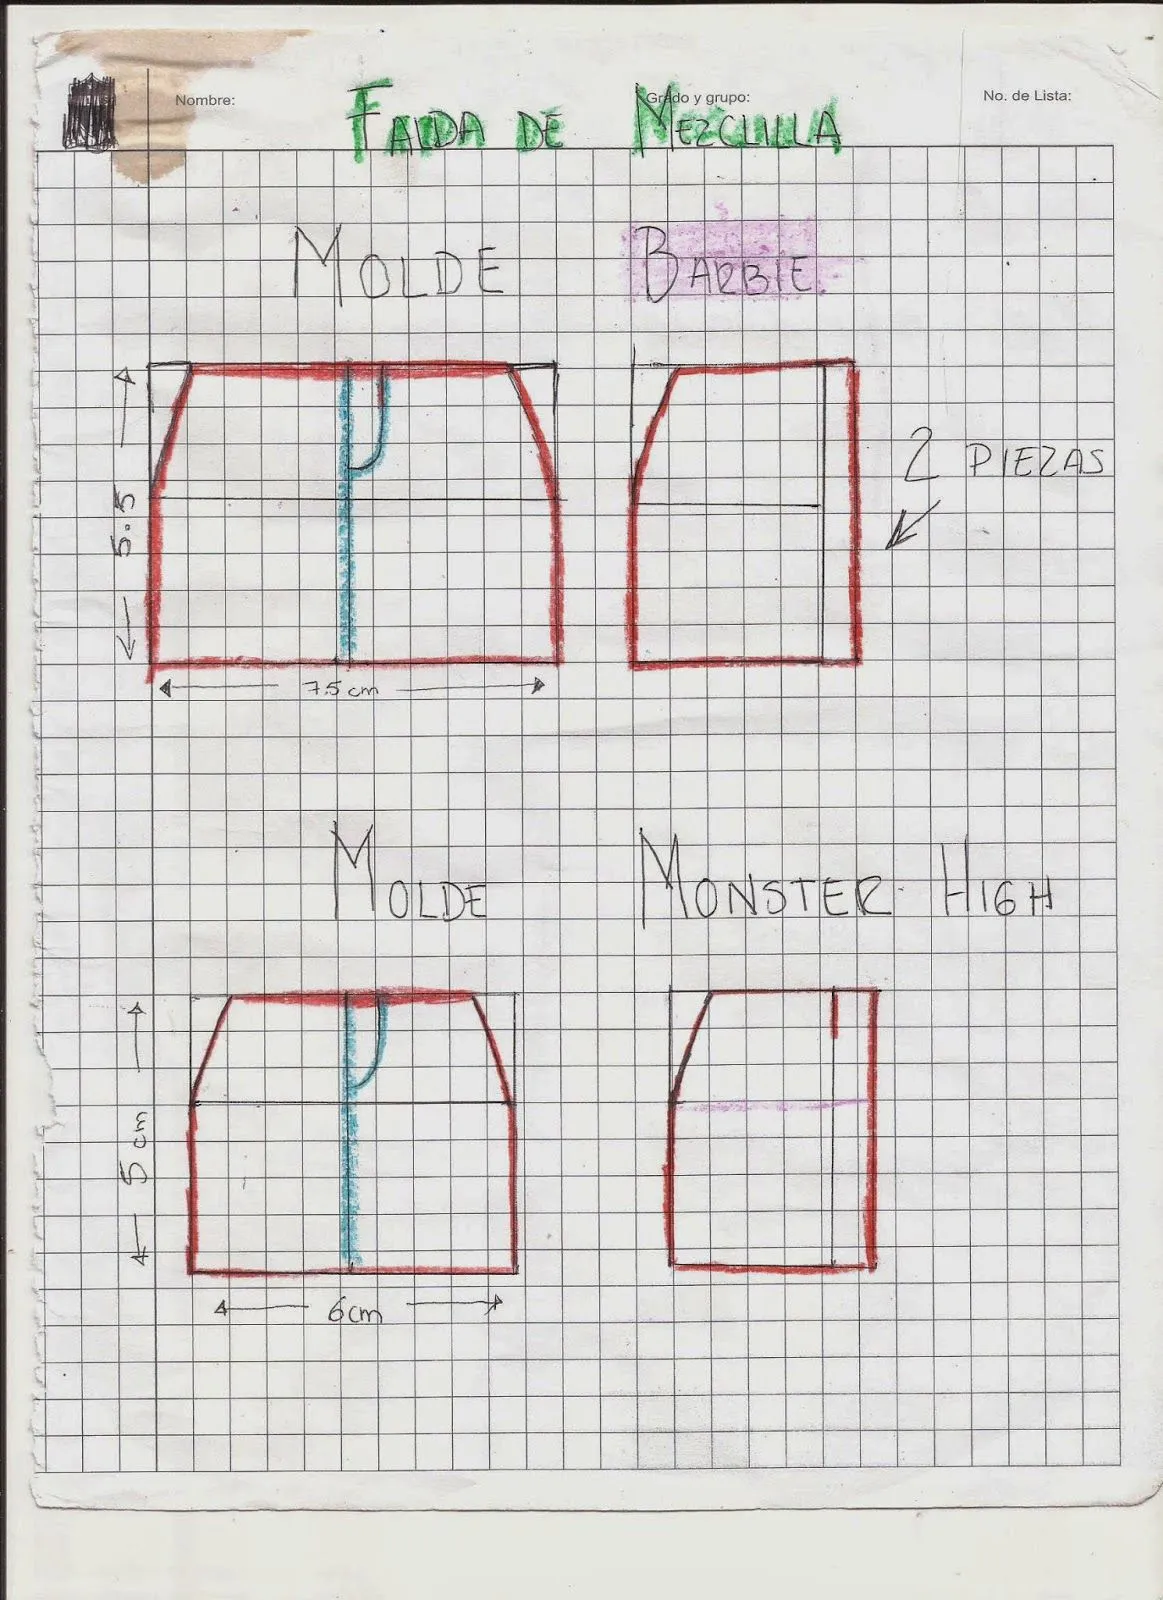 Nombre: Grado y grupo: No. de Lista:
FALDA DE MEZCLILLA
MOLDE BARBIE
2 PIEZAS
5.5
7.5 cm
MOLDE MONSTER HIGH
5 cm
6 cm